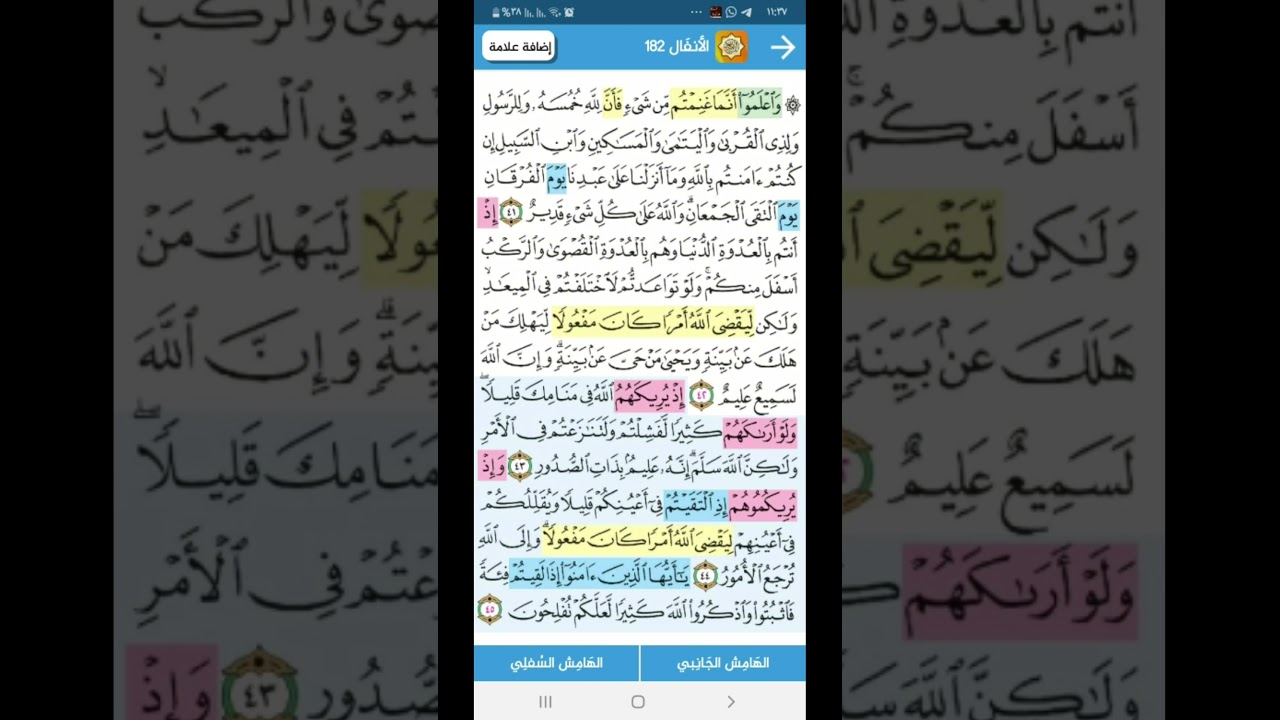 ١١:٣٧ %٣٨
الأنفَال 182
إضافة علامة
۞ وَٱعۡلَمُوٓاْ أَنَّمَا غَنِمۡتُم مِّن شَيۡءٖ فَأَنَّ لِلَّهِ خُمُسَهُۥ وَلِلرَّسُولِ
وَلِذِي ٱلۡقُرۡبَىٰ وَٱلۡيَتَٰمَىٰ وَٱلۡمَسَٰكِينِ وَٱبۡنِ ٱلسَّبِيلِ إِن
كُنتُمۡ ءَامَنتُم بِٱللَّهِ وَمَآ أَنزَلۡنَا عَلَىٰ عَبۡدِنَا يَوۡمَ ٱلۡفُرۡقَانِ
يَوۡمَ ٱلۡتَقَى ٱلۡجَمۡعَانِۗ وَٱللَّهُ عَلَىٰ كُلِّ شَيۡءٖ قَدِيرٌ ٤١ إِذۡ
أَنتُم بِٱلۡعُدۡوَةِ ٱلدُّنۡيَا وَهُم بِٱلۡعُدۡوَةِ ٱلۡقُصۡوَىٰ وَٱلرَّكۡبُ
أَسۡفَلَ مِنكُمۡۚ وَلَوۡ تَوَاعَدتُّمۡ لَٱخۡتَلَفۡتُمۡ فِي ٱلۡمِيعَٰدِ وَلَٰكِن لِّيَقۡضِيَ ٱللَّهُ أَمۡرٗا كَانَ مَفۡعُولٗا لِّيَهۡلِكَ مَنۡ
هَلَكَ عَنۢ بَيِّنَةٖ وَيَحۡيَىٰ مَنۡ حَيَّ عَنۢ بَيِّنَةٖۗ وَإِنَّ ٱللَّهَ
لَسَمِيعٌ عَلِيمٌ ٤٢ إِذۡ يُرِيكَهُمُ ٱللَّهُ فِي مَنَامِكَ قَلِيلٗاۖ
وَلَوۡ أَرَىٰكَهُمۡ كَثِيرٗا لَّفَشِلۡتُمۡ وَلَتَنَٰزَعۡتُمۡ فِي ٱلۡأَمۡرِ
وَلَٰكِنَّ ٱللَّهَ سَلَّمَۗ إِنَّهُۥ عَلِيمُۢ بِذَاتِ ٱلصُّدُورِ ٤٣ وَإِذۡ
يُرِيكُمُوهُمۡ إِذِ ٱلۡتَقَيۡتُمۡ فِيٓ أَعۡيُنِكُمۡ قَلِيلٗا وَيُقَلِّلُكُمۡ
فِيٓ أَعۡيُنِهِمۡ لِيَقۡضِيَ ٱللَّهُ أَمۡرٗا كَانَ مَفۡعُولٗاۗ وَإِلَى ٱللَّهِ
تُرۡجَعُ ٱلۡأُمُورُ ٤٤ يَٰٓأَيُّهَا ٱلَّذِينَ ءَامَنُوٓاْ إِذَا لَقِيتُمۡ فِئَةٗ
فَٱثۡبُتُواْ وَٱذۡكُرُواْ ٱللَّهَ كَثِيرٗا لَّعَلَّكُمۡ تُفۡلِحُونَ ٤٥
الهَامِش الجَانِبي
الهَامِش السُفلِي